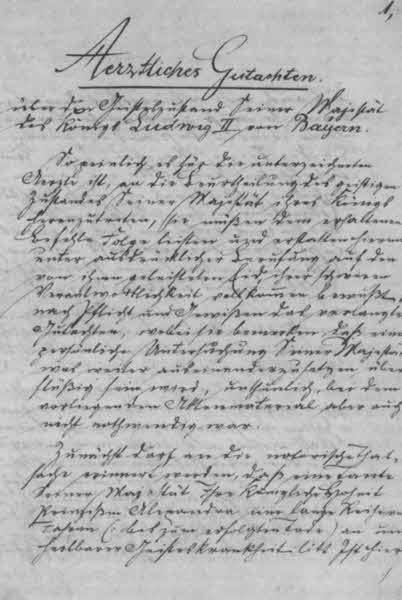 1,
Aerztliches Gutachten.
über den Geisteszustand Seiner Majestät
des Königs Ludwig II von Bayern.
So peinlich es für die unterzeichneten
Aerzte ist, an die Beurtheilung des geistigen
Zustandes Seiner Majestät ihres Königs
heranzutreten, sie müßen dem erhaltenen
Befehle Folge leisten und erstatten hiermit
unter ausdrücklicher Berufung auf den
von ihnen geleisteten Eid ihrer schweren
Verantwortlichkeit vollkommen bewußt,
nach Pflicht und Gewissen das verlangte
Gutachten, wobei sie bemerken, daß eine
persönliche Untersuchung Seiner Majestät
was weiter auseinanderzusetzen über
flüßig sein wird, unthunlich, bei dem
vorliegenden Aktenmaterial aber auch
nicht nothwendig war.
Zunächst darf an die notorische That
sache erinnert werden, daß eine Tante
Seiner Majestät Ihre Königliche Hoheit
Prinzessin Alexandra eine lange Reihe von
Jahren (bis zum erfolgten Tode) an un
heilbarer Geisteskrankheit litt. Ist hier